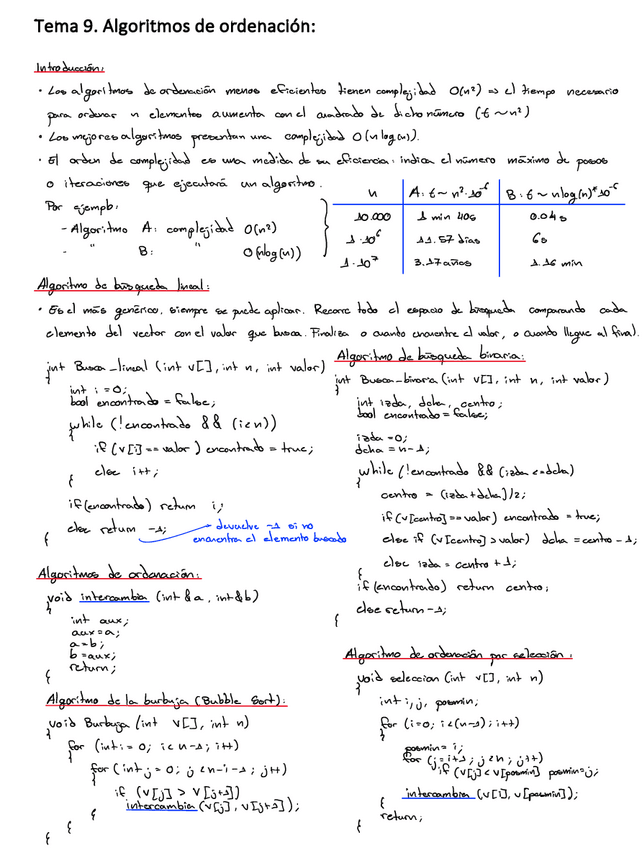 Tema 9. Algoritmos de ordenación:
Introducción:
• Los algoritmos de ordenación menos eficientes tienen complejidad O(n²) => el tiempo necesario
para ordenar n elementos aumenta con el cuadrado de dicho número (t ~ n²)
• Los mejores algoritmos presentan una complejidad O(n log(n)).
• El orden de complejidad es una medida de su eficiencia: indica el número máximo de pasos
o iteraciones que ejecutará un algoritmo.
Por ejemplo:
- Algoritmo A: complejidad O(n²)
- " B: " O(nlog(n))
n A: t ~ n²·10⁻⁶ B: t ~ nlog(n)*10⁻⁶
10.000 1 min 40s 0.04s
1·10⁶ 11.57 días 6s
1·10⁷ 3.17 años 1.16 min
Algoritmo de búsqueda lineal:
• Es el más genérico, siempre se puede aplicar. Recorre todo el espacio de búsqueda comparando cada
elemento del vector con el valor que busca. Finaliza o cuando encuentre el valor, o cuando llegue al final.
int Busca_lineal (int v[], int n, int valor)
{
int i = 0;
bool encontrado = false;
while (!encontrado && (i<n))
{
if (v[i] == valor) encontrado = true;
else i++;
}
if (encontrado) return i;
else return -1; → devuelve -1 si no
encuentra el elemento buscado
}
Algoritmo de búsqueda binaria:
int Busca_binaria (int v[], int n, int valor)
{
int izda, dcha, centro;
bool encontrado = false;
izda = 0;
dcha = n-1;
while (!encontrado && (izda <= dcha)
{
centro = (izda+dcha)/2;
if (v[centro] == valor) encontrado = true;
else if (v[centro] > valor) dcha = centro - 1;
else izda = centro + 1;
}
if (encontrado) return centro;
else return -1;
}
Algoritmos de ordenación:
void intercambia (int &a, int &b)
{
int aux;
aux = a;
a = b;
b = aux;
return;
}
Algoritmo de la burbuja (Bubble Sort):
void Burbuja (int v[], int n)
{
for (int i = 0; i < n-1; i++)
{
for (int j = 0; j < n-i-1; j++)
{
if (v[j] > v[j+1])
intercambia (v[j], v[j+1]);
}
}
}
Algoritmo de ordenación por selección:
void seleccion (int v[], int n)
{
int i, j, posmin;
for (i=0; i<(n-1); i++)
{
posmin = i;
for (j=i+1; j<n; j++)
if (v[j] < v[posmin] posmin = j;
intercambia (v[i], v[posmin]);
}
return;
}